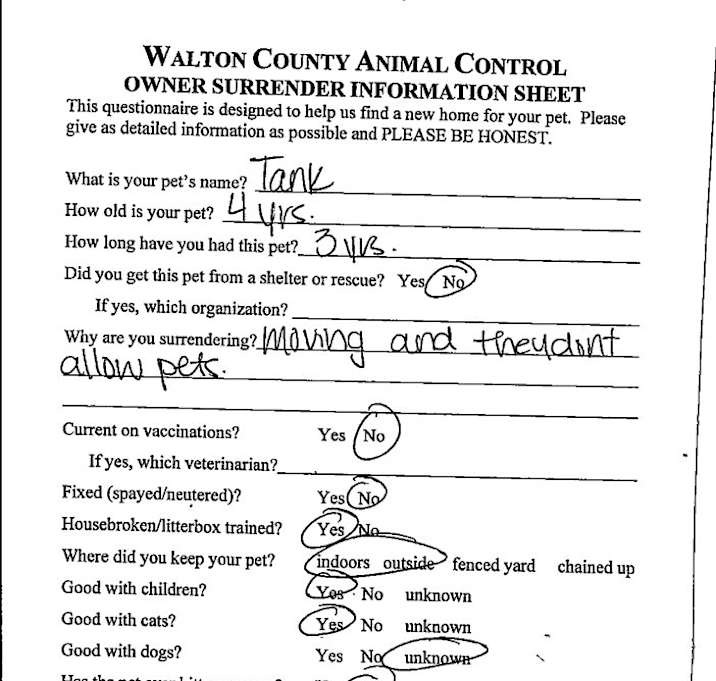 WALTON COUNTY ANIMAL CONTROL
OWNER SURRENDER INFORMATION SHEET
This questionnaire is designed to help us find a new home for your pet. Please
give as detailed information as possible and PLEASE BE HONEST.
What is your pet's name? Tank
How old is your pet? 4 yrs.
How long have you had this pet? 3 yrs.
Did you get this pet from a shelter or rescue? Yes No
If yes, which organization?
Why are you surrendering? Moving and they dont
allow pets.
Current on vaccinations? Yes No
If yes, which veterinarian?
Fixed (spayed/neutered)? Yes No
Housebroken/litterbox trained? Yes No
Where did you keep your pet? indoors outside fenced yard chained up
Good with children? Yes No unknown
Good with cats? Yes No unknown
Good with dogs? Yes No unknown